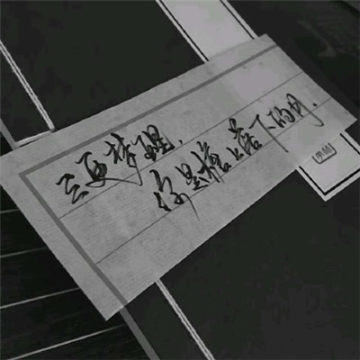 三更梦醒，
你是檐上落下的月．